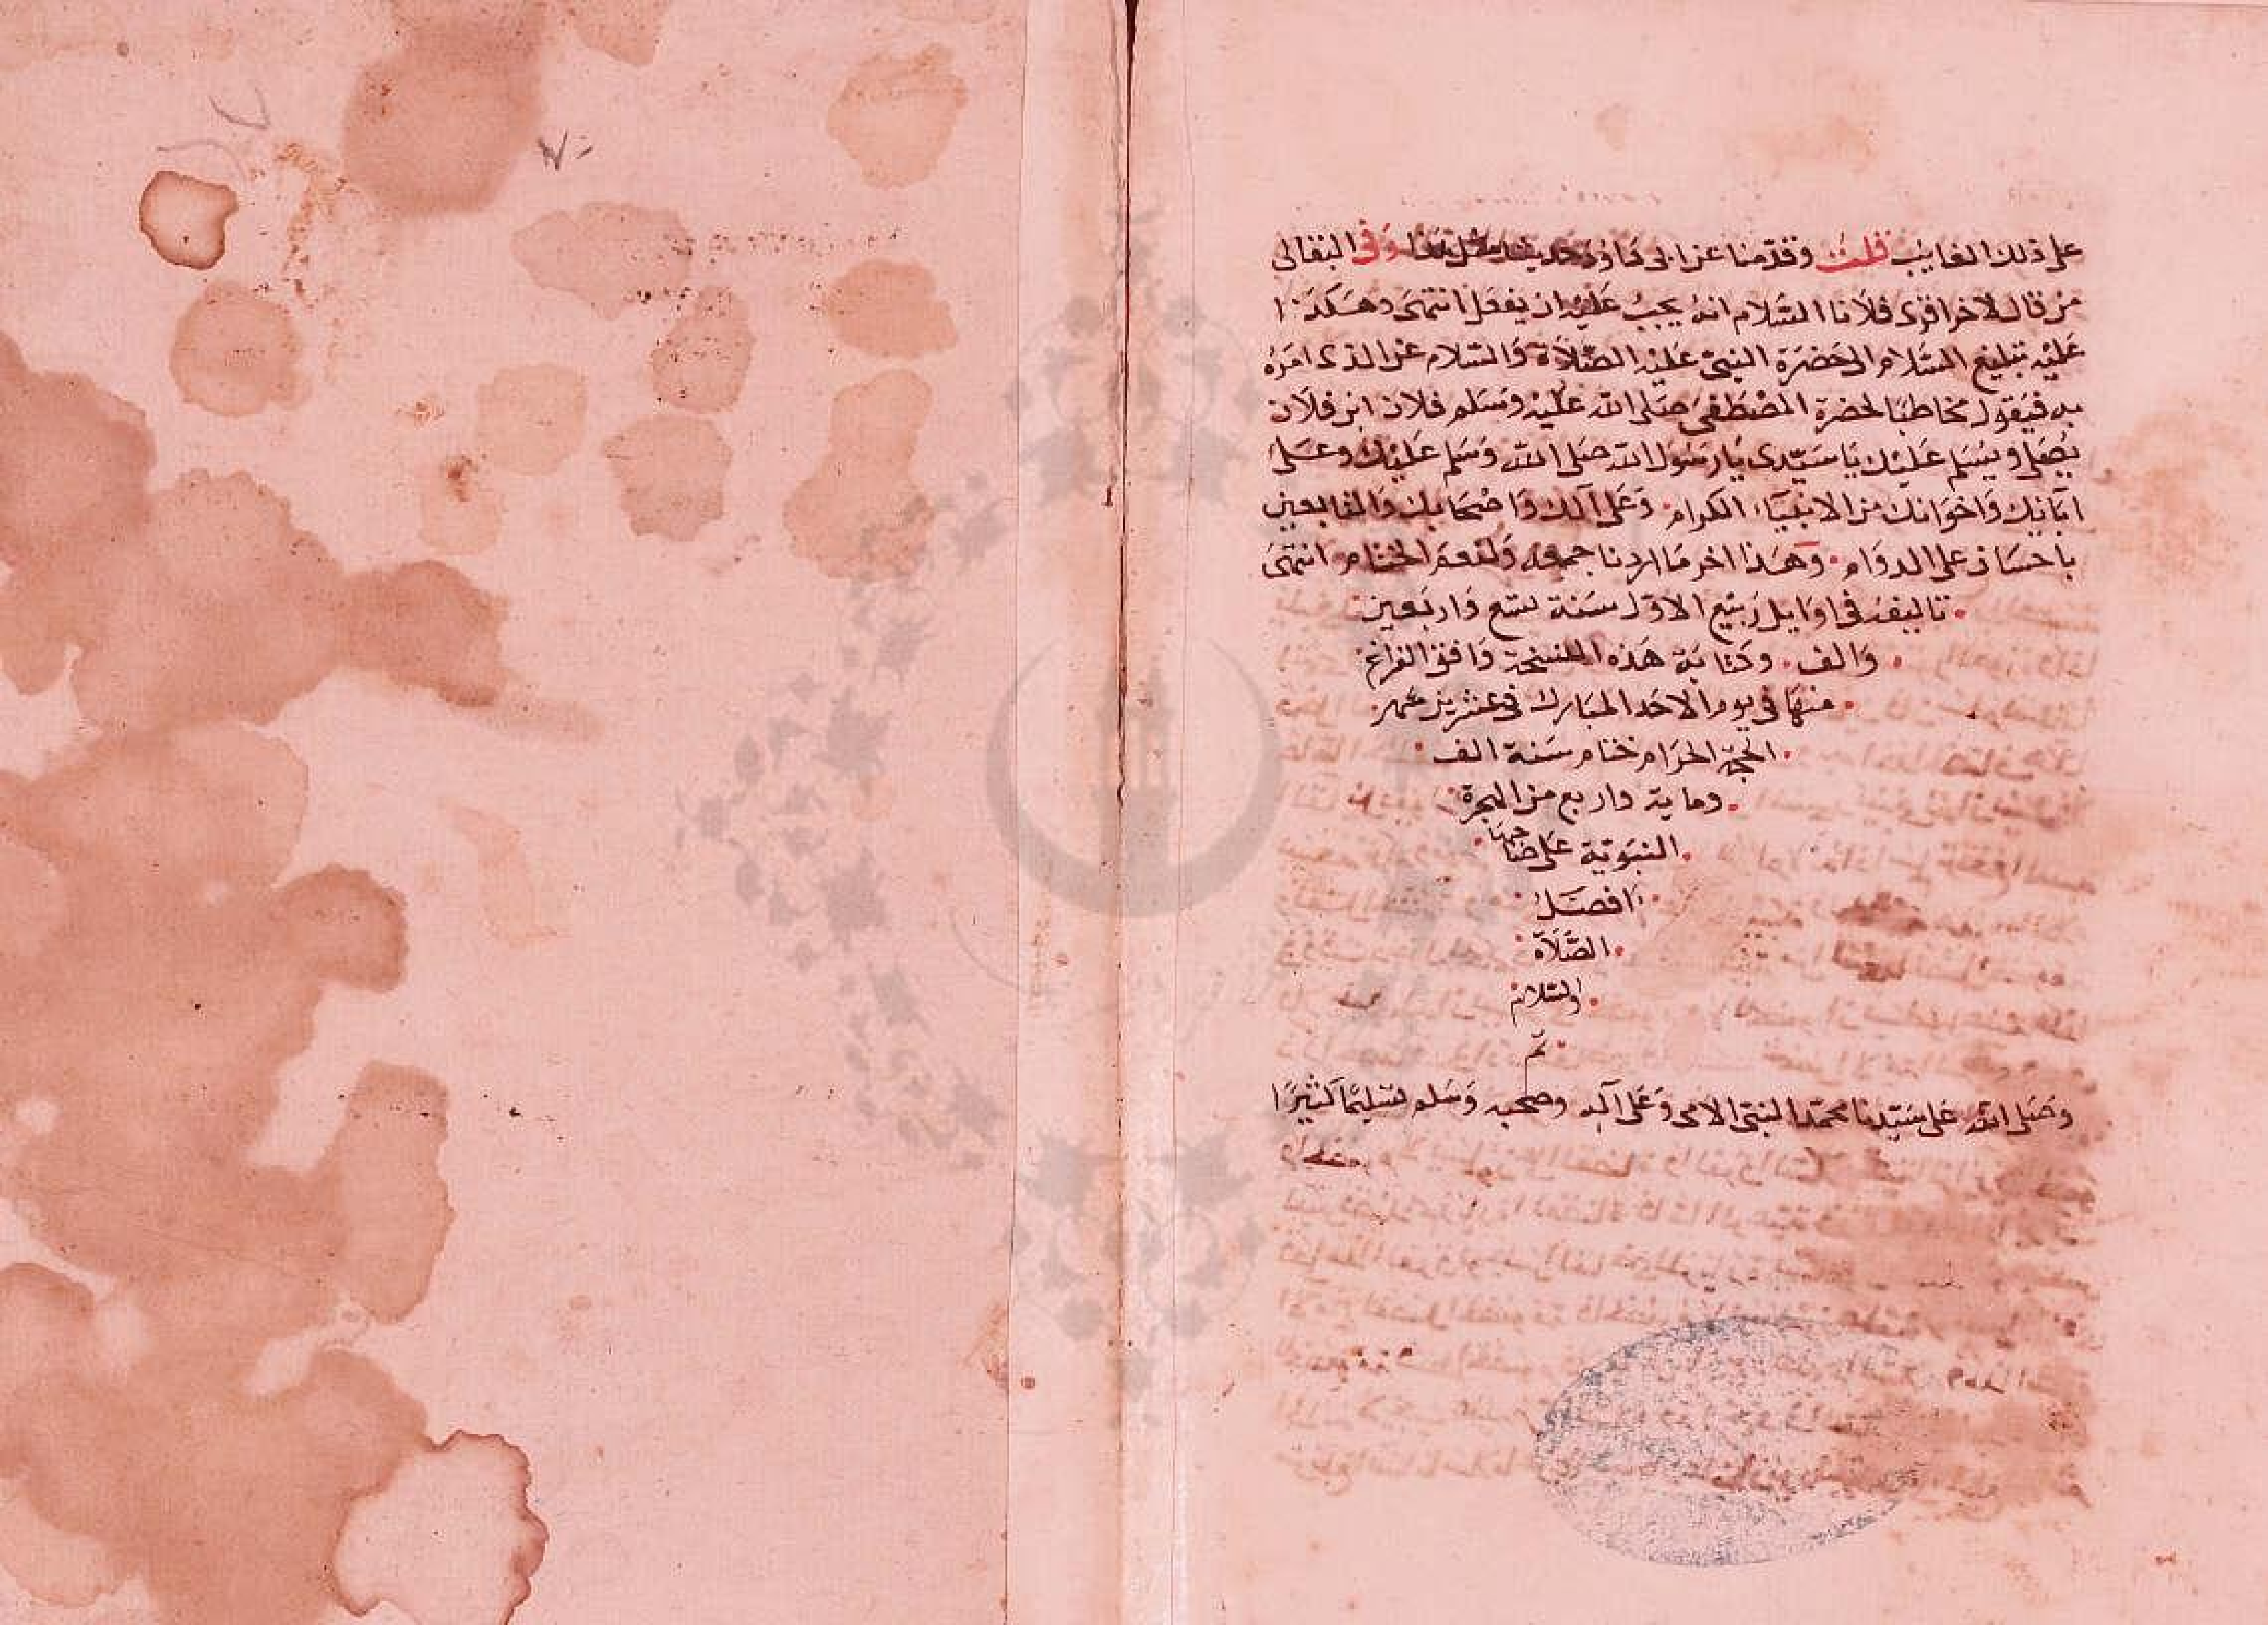 على ذلك الغايب قلت وقدمنا عن ابى داود حديث مثل هذا وفى البقالى
من قال لاخر اقرى فلانا السلام انه يجب عليه ان يفعل انتهى وهكذا
عليه تبليغ السلام الى حضرة النبى عليه الصلاة والسلام عن الذى امره
به فيقول مخاطبا لحضرة المصطفى صلى الله عليه وسلم فلان ابن فلان
يصلى ويسلم عليك يا سيدى يا رسول الله صلى الله وسلم عليك وعلى
ابائك واخوانك من الانبياء الكرام وعلى آلك واصحابك والتابعين
باحسان على الدوام وهذا اخر ما اردنا جمعه ولنعم الختام انتهى
تاليفه فى اوايل ربيع الاول سنة تسع واربعين
والف وكتابة هذه النسخة وافق الفراغ
منها فى يوم الاحد المبارك فى عشرين شهر
الحجة الحرام ختام سنة الف
وماية واربع من الهجرة
النبوية على صاحبها
افضل
الصلاة
والسلام
تم
وصلى الله على سيدنا محمد النبى الامى وعلى آله وصحبه وسلم تسليما كثيرا